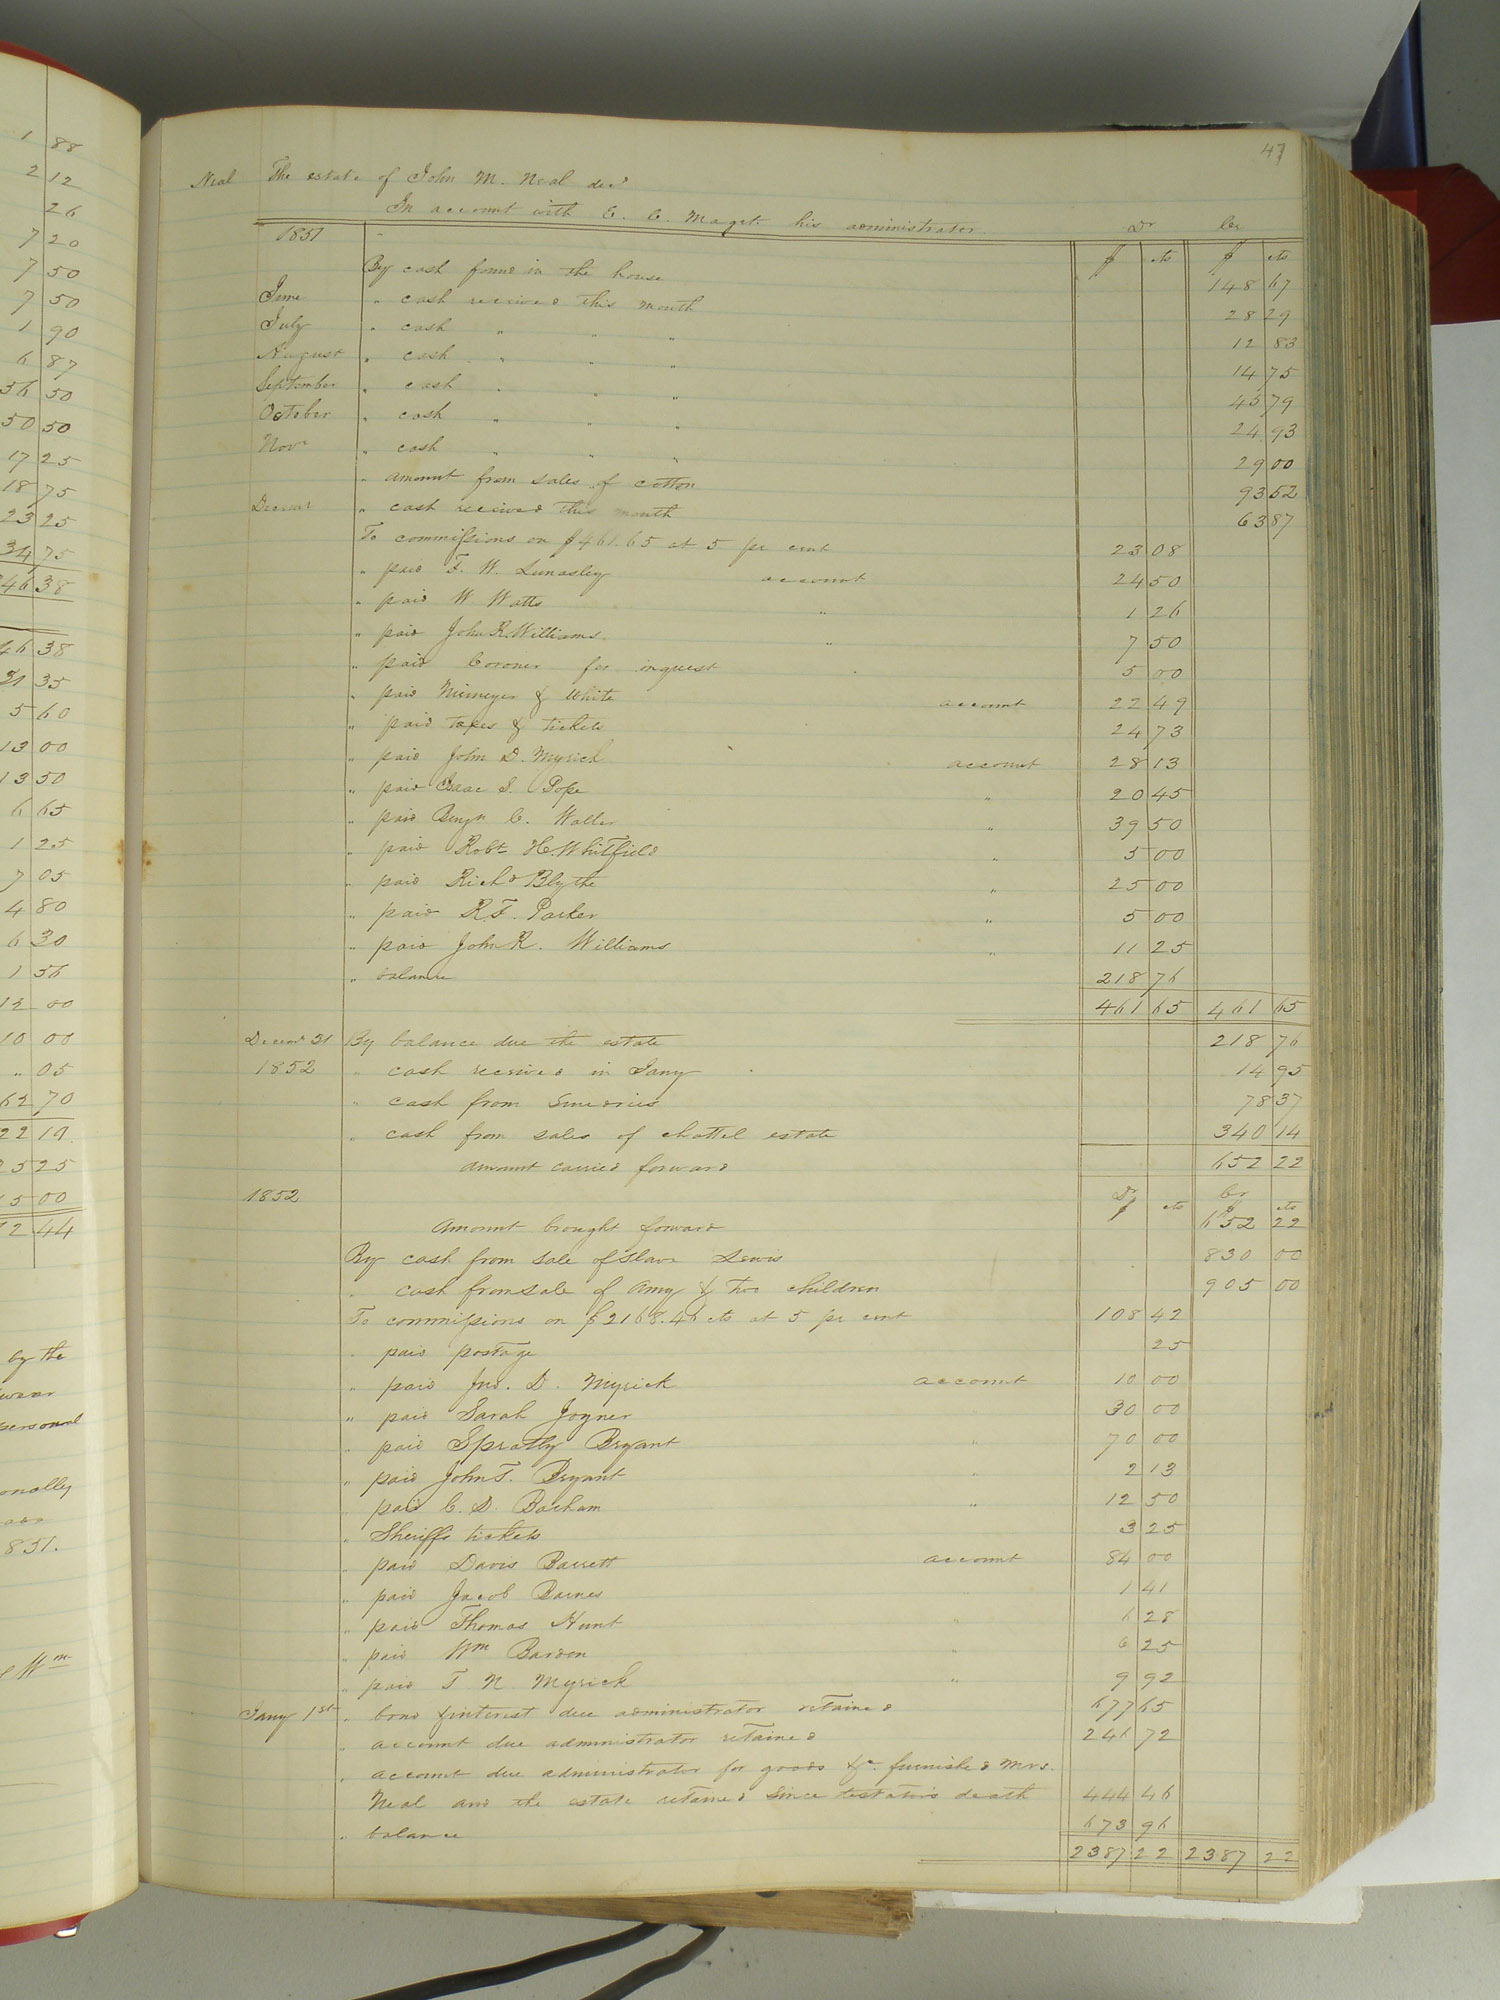 1 88
2 12
26
7 20
7 50
7 50
1 90
6 87
56 50
50 50
17 25
18 75
23 25
34 75
46 38
46 38
31 35
5 60
13 00
13 50
6 65
1 25
7 05
4 80
6 30
1 56
12 00
10 00
" 05
62 70
22 19
5 25
5 00
2 44
by the
personal
onally
851.
Wm
47
Neal The estate of John M. Neal decd
In account with E. C. Maget his administrator. Dr Cr
1851 $ cts $ cts
By cash found in the house 148 67
June " cash received this month 28 29
July " cash " " " 12 83
August " cash " " " 14 75
September " cash " " " 45 79
October " cash " " " 24 93
Novr " cash " " " 29 00
" amount from sales of cotton 93 52
Decemr " cash received this month 63 87
To commissions on $461.65 at 5 per cent 23 08
" paid F. W. Lunasley account 24 50
" paid W Watts " 1 26
" paid John R. Williams. " 7 50
" paid Coroner for inquest 5 00
" paid Niemeyer & White account 22 49
" paid taxes & tickets 24 73
" paid John D. Myrick account 28 13
" paid Isaac S. Pope " 20 45
" paid Benjn C. Waller " 39 50
" paid Robt H. Whitfield " 5 00
" paid Richd Blythe " 25 00
" paid R. F. Parker " 5 00
" paid John R. Williams " 11 25
" balance 218 76
461 65 461 65
Decemr 31 By balance due the estate 218 76
1852 " cash received in Jany 14 95
" cash from Sundries 78 37
" cash from sales of chattel estate 340 14
Amount carried forward 652 22
1852 Dr $ cts Cr $ cts
Amount brought forward 652 22
By cash from sale of slave Lewis 830 00
" cash from sale of Amy & two children 905 00
To commissions on $2168.46 cts at 5 per cent 108 42
" paid postage 25
" paid Jno. D. Myrick account 10 00
" paid Sarah Joyner " 30 00
" paid Spratly Bryant " 70 00
" paid John T. Bryant " 2 13
" paid C. D. Barham " 12 50
" Sheriffs tickets 3 25
" paid Davis Barrett account 84 00
" paid Jacob Barnes " 1 41
" paid Thomas Hunt " 6 28
" paid Wm Barden " 6 25
" paid T N Myrick " 9 92
Jany 1st " bond & interest due administrator retained 677 65
" account due administrator retained 246 72
" account due administrator for goods &c. furnished Mrs.
Neal and the estate retained since testator's death 444 46
" balance 673 96
2387 22 2387 22